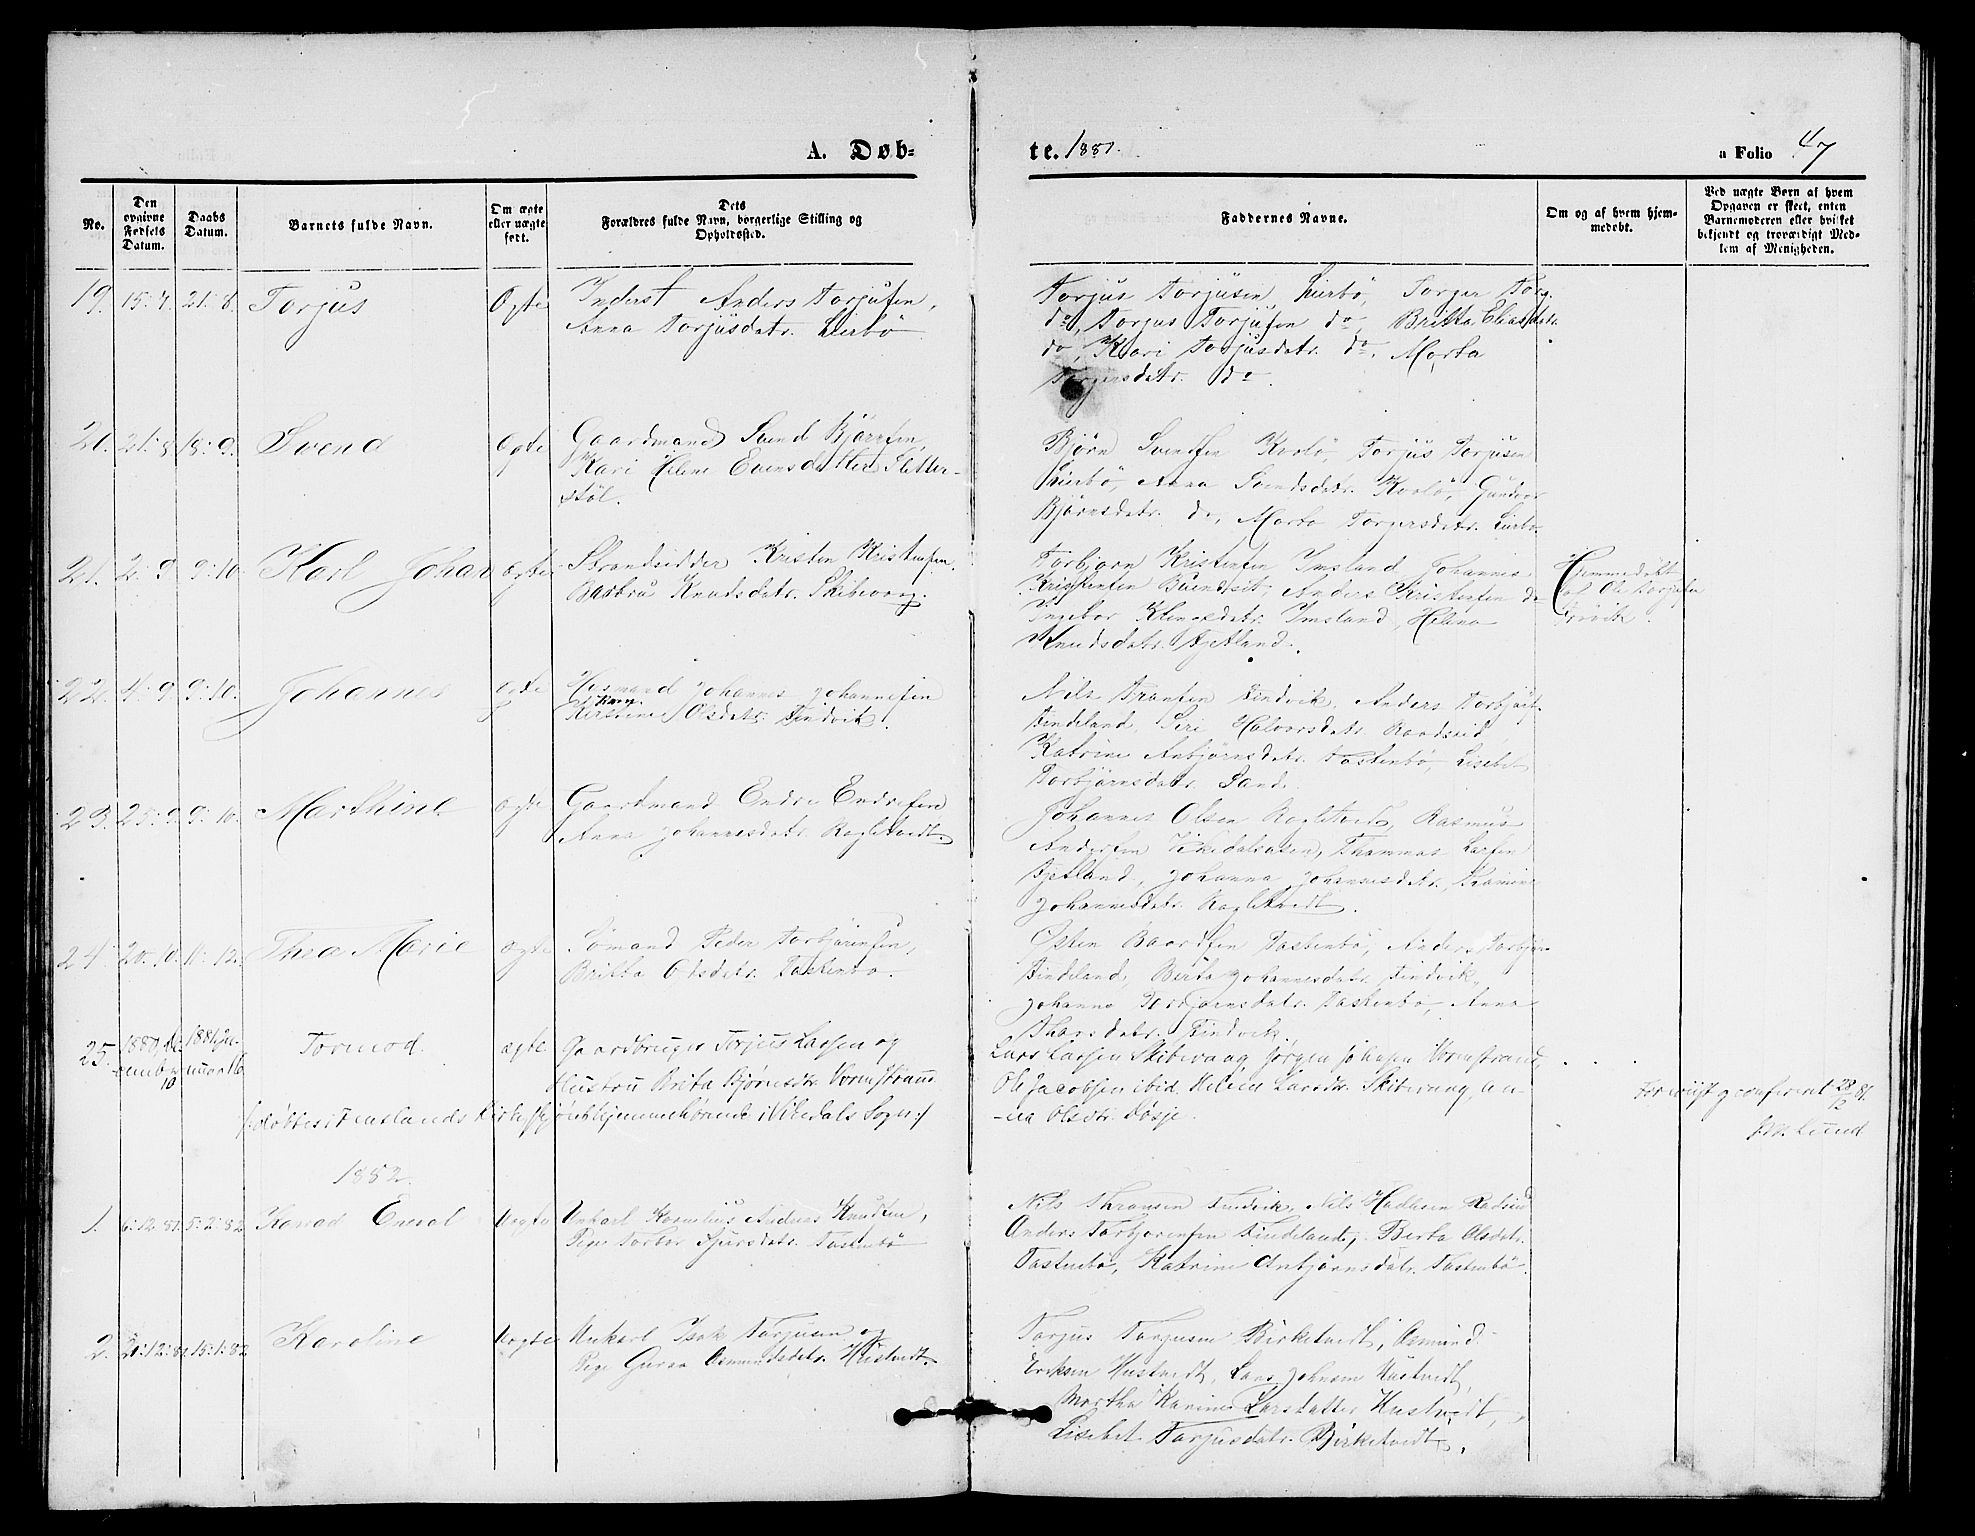 A. Døb-
te. 1881.
a Folio 47
No.
Den opgivne Fødsels Datum.
Daabs Datum.
Barnets fulde Navn.
Om ægte eller uægte født.
Dets Forældres fulde Navn, borgerlige Stilling og Opholdssted.
Faddernes Navne.
Om og af hvem hjemmedøbt.
Ved uægte Børn af hvem Opgaven er skeet, enten Barnemoderen eller hvilket bekjendt og troværdigt Medlem af Menigheden.
19. 15:7 21:8. Torjus Ægte Inderst Anders Torjusen,
Anna Torjusdatr. Lierbö
Torjus Torjusen Lierbö, Torger Torg.
do, Torjus Torjusen do, Britta Eliasdatr.
do, Kari Torjusdatr. do, Marta
Torgersdatr. do.
20. 21:8 18:9. Svend Ægte Gaardmand Svend Björnsen,
Kari Helene Evensdatter Sletter-
stöl.
Bjørn Svendsen Kvolö, Torjus Torjusen
Lierbö, Anna Svendsdatr. Kvolö, Gundvor
Björnsdatr. do, Marta Torgersdatr. Lierbö
21. 2:9 9:10 Karl Johan Ægte Strandsidder Kristen Kristensen,
Barbru Knudsdatr. Skibevaag.
Torbjørn Kristensen Imsland, Johannes
Kristensen Buendsit, Anders Kristensen do
Ingebor Klemesdatr. Imsland, Helena
Knudsdatr. Apeland.
Hjemmedøbt
af Ole Torjusen
22. 4:9 9:10. Johannes Ægte Husmand Johannes Johannesen
Kirstine Olsdatr. Tindvik.
Nils Tranten Tindvik, Anders Torbjörns.
Tindeland, Siri Halvorsdatr. Raadseid
Katrine Anbjørnsdatr. Tastenbö, Lisebet
Torbjörnsdatr. Sand.
23. 25:9 9:10. Marthine Ægte Gaardmand Endre Endresen
Anna Johannesdatr. Ragletvedt
Johannes Olsen Ragletvedt, Rasmus
Andersen Vikedalsåsen, Thommas Larsen
Apeland, Johanna Johannesdatr.
Johannesdatr. Ragletvedt.
24. 20:10. 11:12. Thea Marie Ægte Sömand Peder Torbjörnsen,
Britta Olsdatr. Tastenbö.
Østen Baardsen Tastenbö, Anders Torbjörn.
Tindeland, Berta Johannesdatr. Tindvik,
Johanna Torbjørnsdatr. Tastenbö, Anna
Tindvik.
25. 1880, De-
cember
10
1881, Ja-
nuar 16
Tormod. ægte. Gaardbruger Torjus Larsen og
Hustru Brita Bjørnsdtr. Vormstrand
/: døbtes i Imslands Kirke hjemmehørende i Vikedals Sogn :/
Lars Larsen Skibevaag, Jørgen Johnsen Vormstrand,
Ole Jacobsen ibid. Helene Larsdtr. Skibevaag, An-
-na Olsdtr. Døsje.
Forevist og confereret 28/12 81.
J.M. Lund
1882.
1. 6:12.81 5:2:82 Konrad Uægte Unkarl Kornelius Andreas Knudsen,
Pige Torbor Sjursdatr. Tastenbö
Nils Thransen Tindvik, Nils
Anders Torbjørnsen Tindeland, Berta Olsdatr.
Tastenbö, Katrine Anbjørnsdatr. Tastenbö.
2. 20:12:81 15:1:82 Karoline Uægte Unkarl Isak Torjusen og
Pige Guraa Osmundsdatr. Hustvedt.
Torjus Torjusen Birketvedt, Osmund
Eriksen Hustvedt, Lars Johnsen Hustvedt,
Martha Karine Larsdatter Hustvedt,
Lisebet Torjusdatr. Birketvedt.